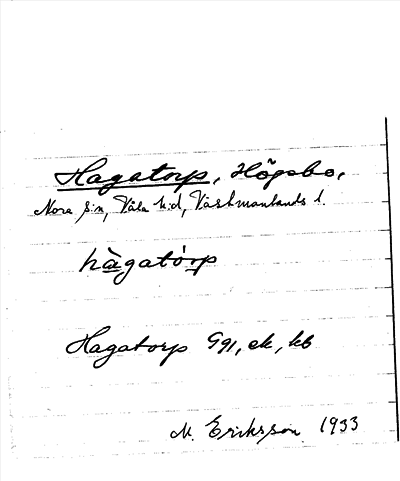 Hagatorp, Högsbo,
Nora s:n, Våla h:d, Västmanlands l.
hàgatórp
Hagatorp 991, ek, kb
M. Eriksson 1933